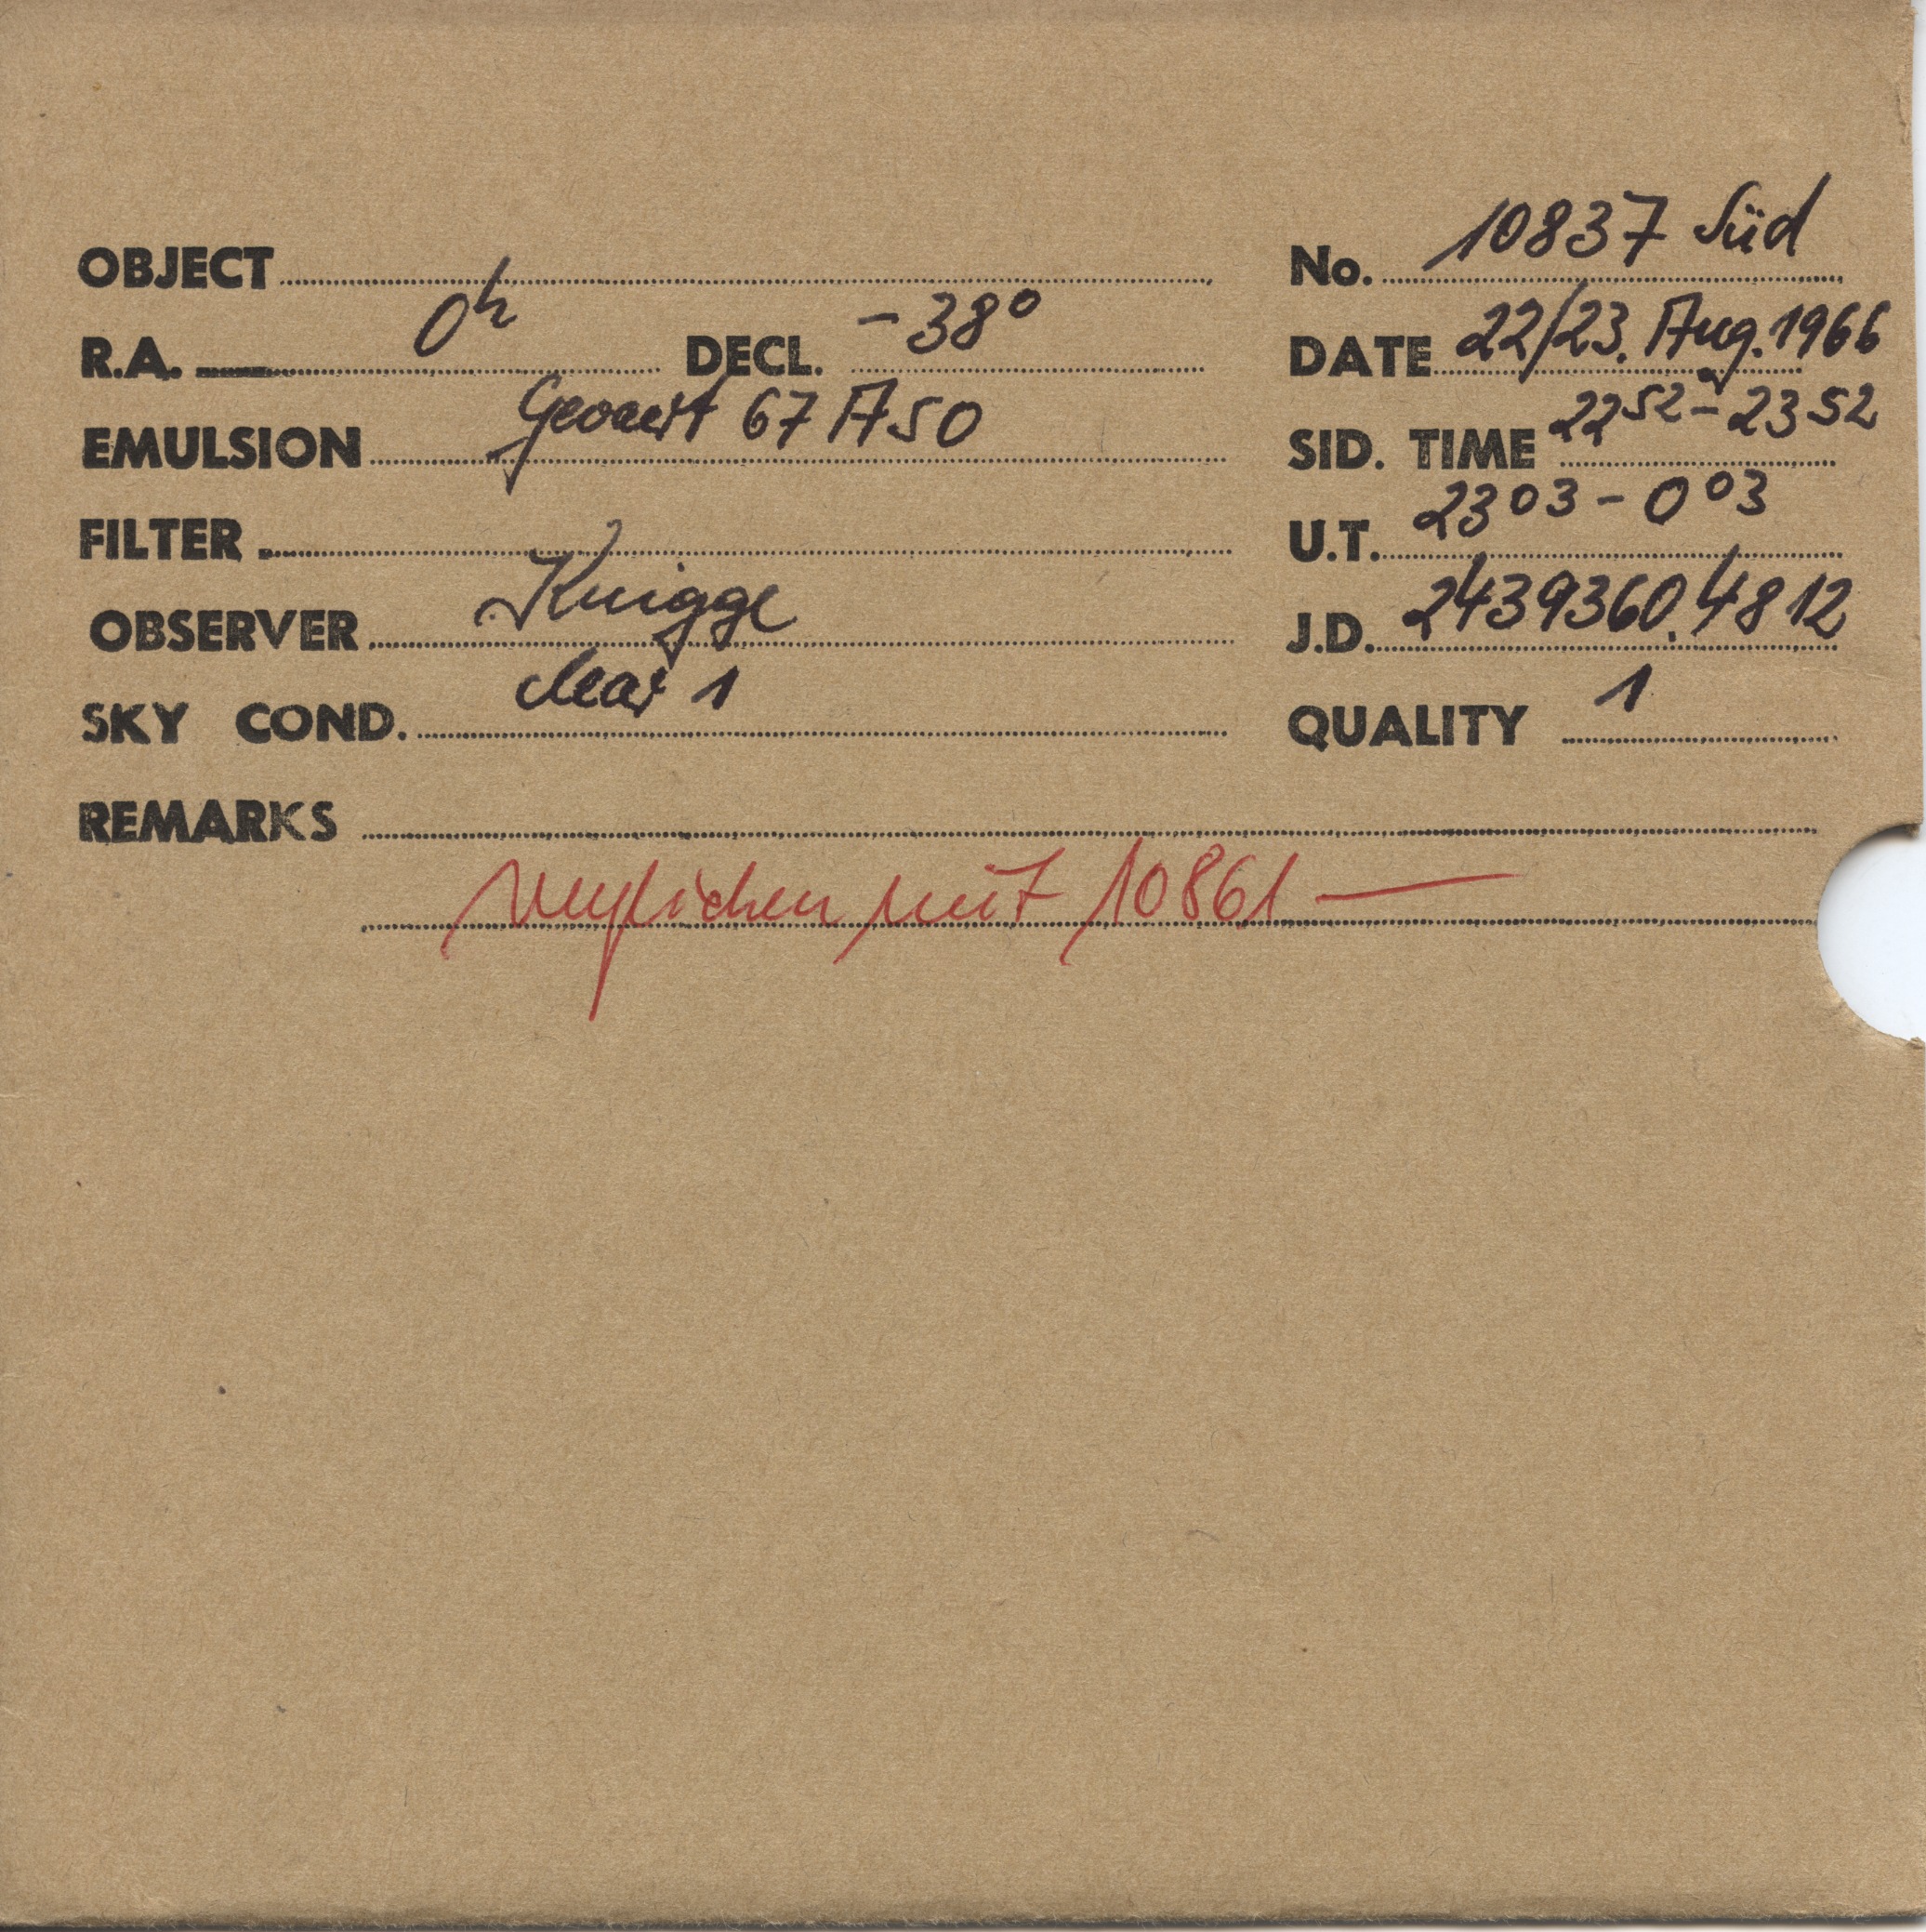 OBJECT No. 10837 Süd
R.A. 0h DECL. -38° DATE 22/23. Aug. 1966
EMULSION Gevaert 67 A50 SID. TIME 22 52 - 23 52
FILTER U.T. 23 03 - 0 03
OBSERVER Knigge J.D. 2439360.4812
SKY COND. clear 1 QUALITY 1
REMARKS
verglichen mit 10861 —